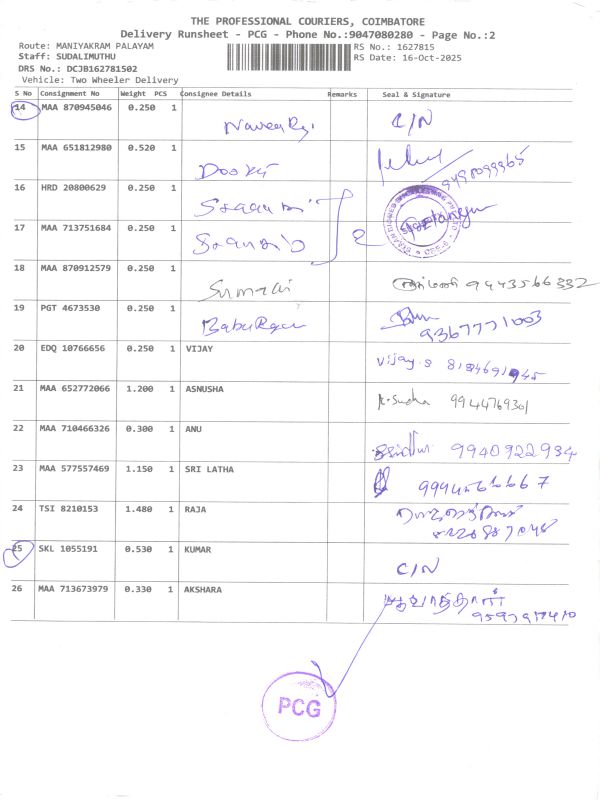 THE PROFESSIONAL COURIERS, COIMBATORE
Delivery Runsheet - PCG - Phone No.:9047080280 - Page No.:2
Route: MANIYAKRAM PALAYAM RS No.: 1627815
Staff: SUDALIMUTHU RS Date: 16-Oct-2025
DRS No.: DCJB162781502
Vehicle: Two Wheeler Delivery
S No Consignment No Weight PCS Consignee Details Remarks Seal & Signature
14 MAA 870945046 0.250 1 C/N
15 MAA 651812980 0.520 1
16 HRD 20800629 0.250 1
17 MAA 713751684 0.250 1 2
18 MAA 870912579 0.250 1 9443566332
19 PGT 4673530 0.250 1 BabuRaja
9367771003
20 EDQ 10766656 0.250 1 VIJAY vijay.s
21 MAA 652772066 1.200 1 ASNUSHA k.Sudha 9944769301
22 MAA 710466326 0.300 1 ANU 9940922934
23 MAA 577557469 1.150 1 SRI LATHA
24 TSI 8210153 1.480 1 RAJA
25 SKL 1055191 0.530 1 KUMAR C/N
26 MAA 713673979 0.330 1 AKSHARA
PCG